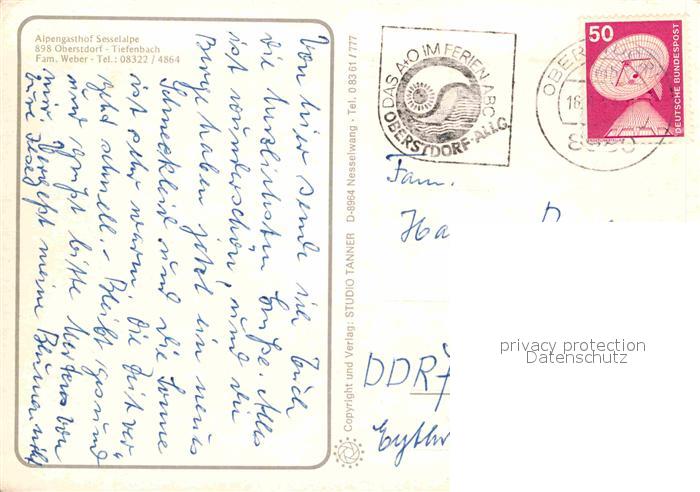 Alpengasthof Sesselalpe
898 Oberstdorf - Tiefenbach
Fam. Weber - Tel.: 08322 / 4864
Von hier sende ich Euch
die herzlichsten Grüße. Alles
ist wunderschön, und die
Berge haben jetzt ein neues
Schneekleid und die Sonne
ist sehr warm. Die Zeit ver-
geht schnell. - Bleibt gesund
und bitte von
mir. Vergesst meine Blumen nicht
Eure
Copyright und Verlag: STUDIO TANNER D-8964 Nesselwang · Tel. 0 83 61 / 777
DAS A·O IM FERIEN ABC
OBERSTDORF-ALLG.
OBER
18.
50
DEUTSCHE BUNDESPOST
Fam.
Ha
DDR
privacy protection
Datenschutz